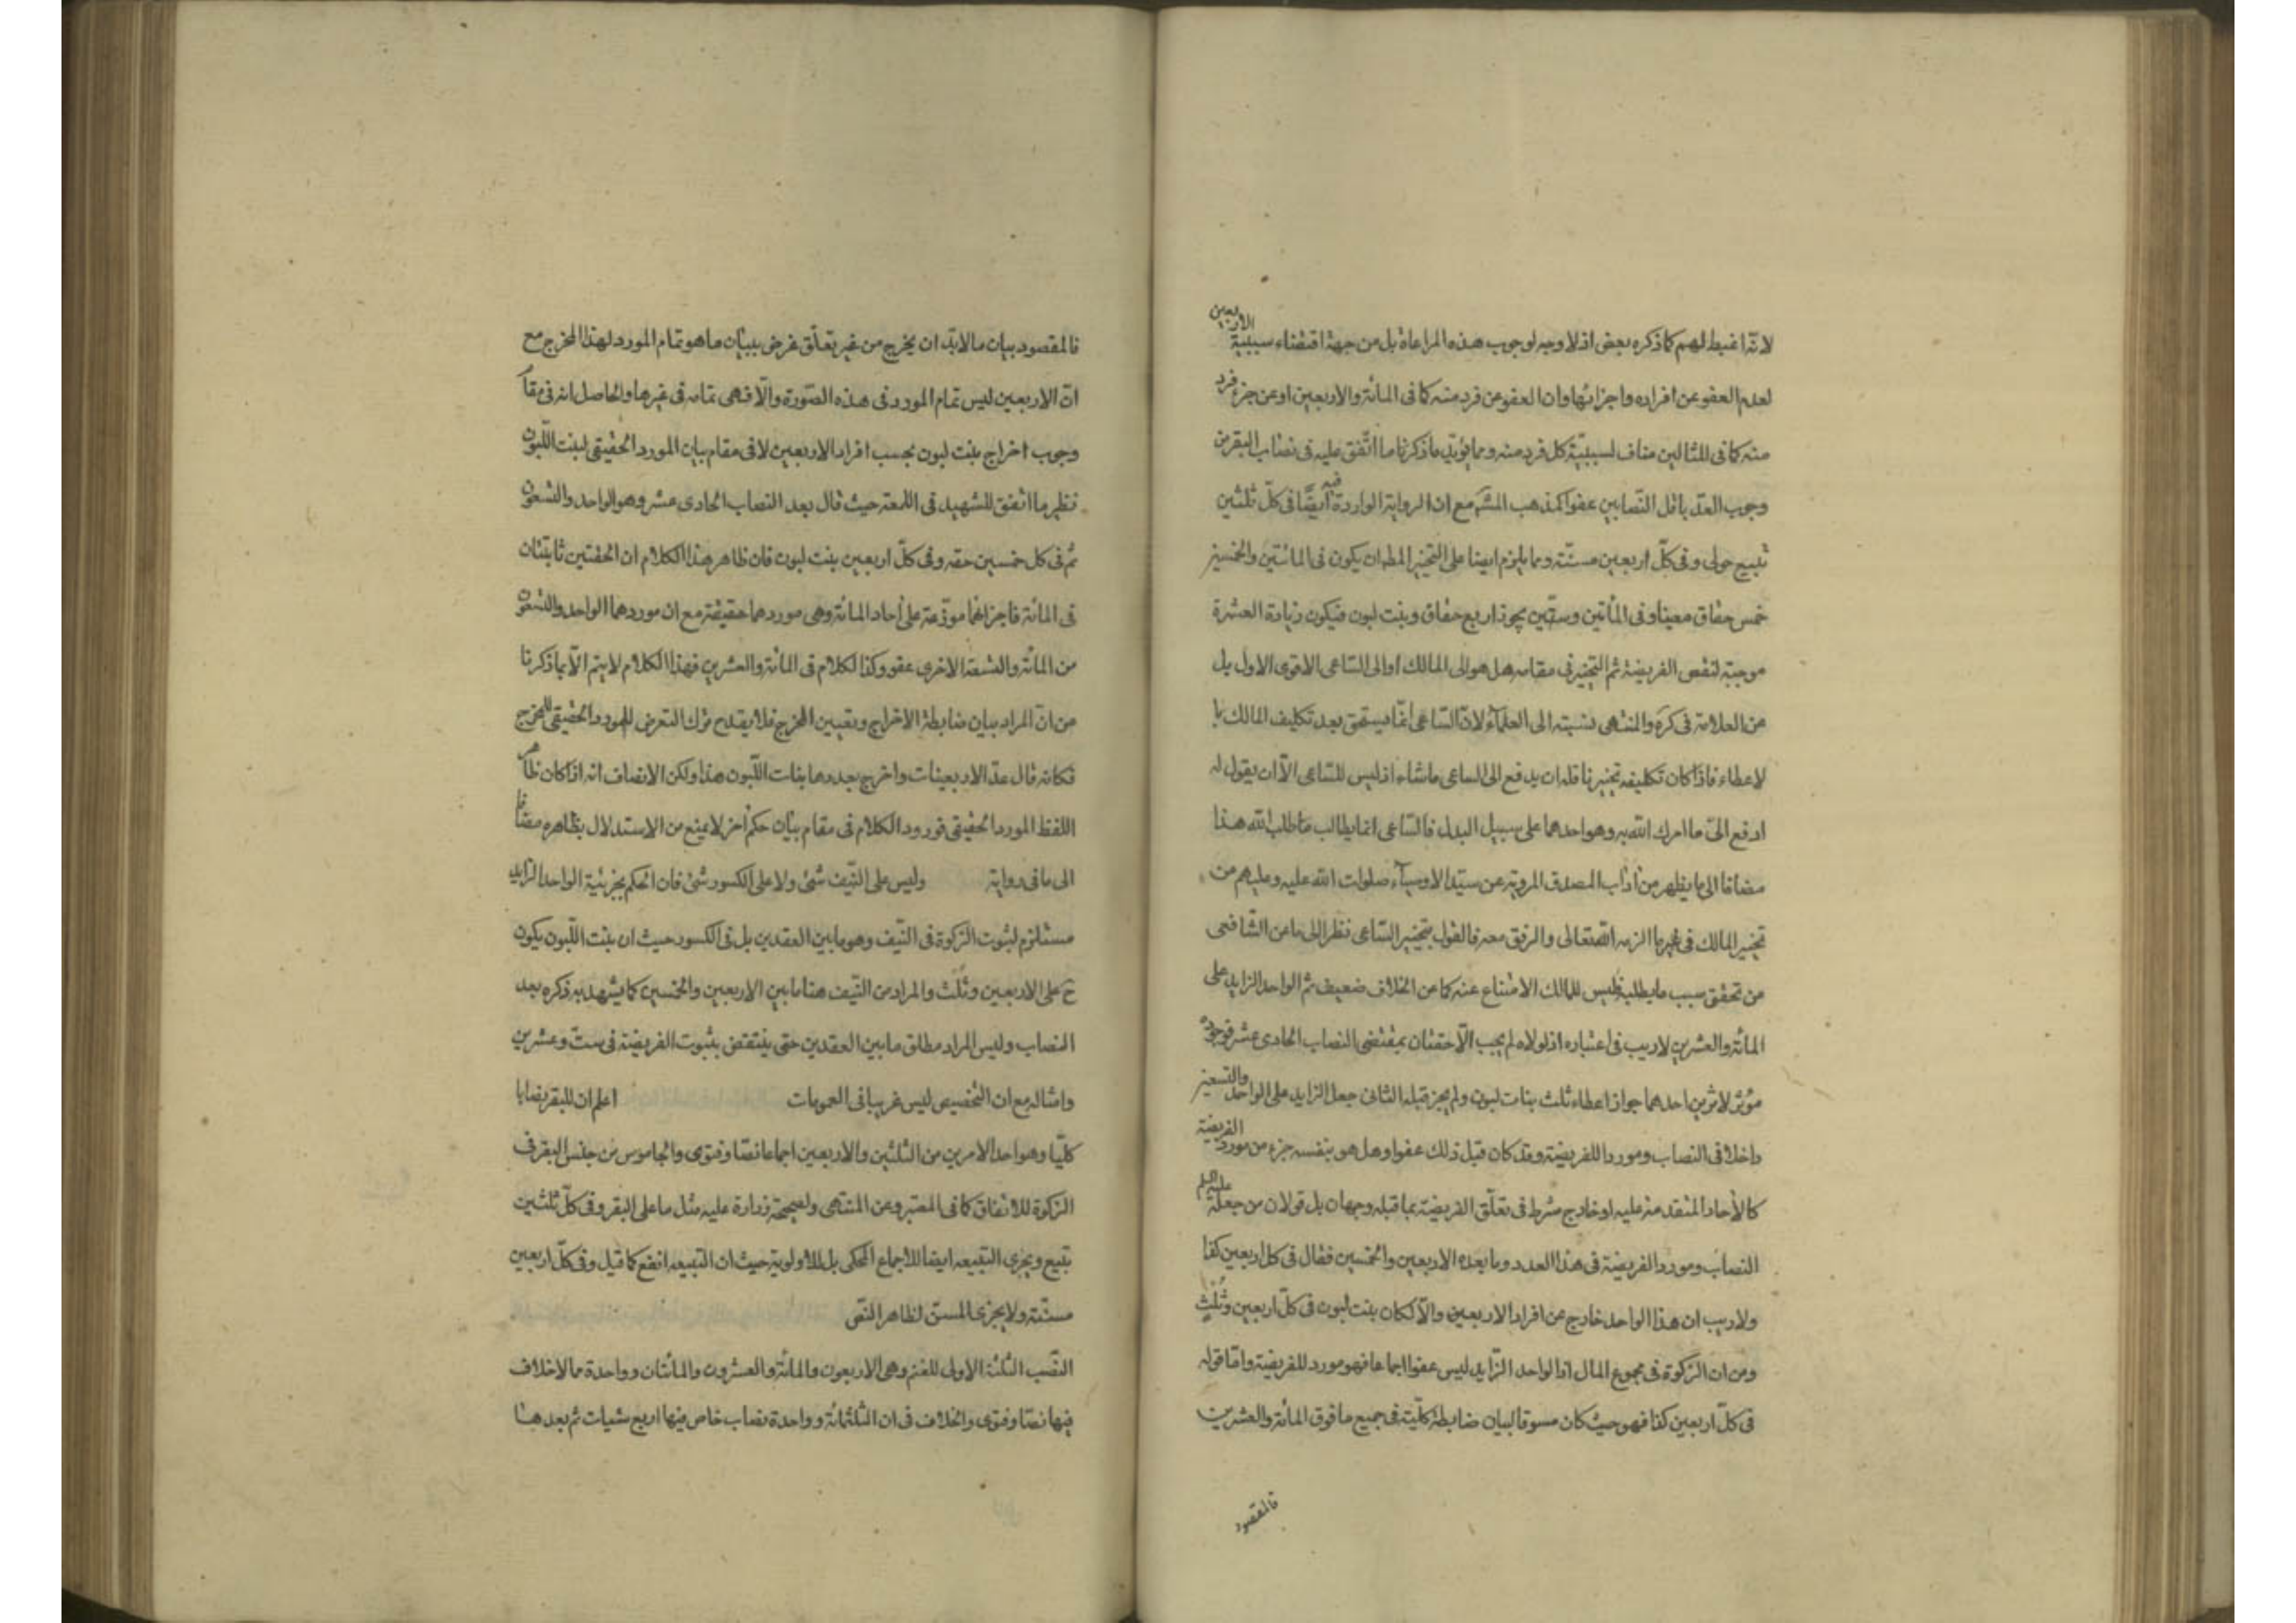 لانّه اغبط لهم كما ذكره بعض اذ لا وجه لوجوب هذه المراعاة بل من جهة اقتضاء سببية الاربعين
لعدم العفو عن افراده واجزائها وان العفو عن فرد منه كما فى المائة والاربعين او عن جزء فرد
منه كما فى المثالين مناف لسببيّة كل فرد منه ومما يؤيد ما ذكرنا ما اتّفق عليه فى نصاب البقر من
وجوب العدّ باقل النّصابين عفوا كمذهب المشهَ مع ان الرواية الواردة فيه ايضًا فى كلّ ثلثين
تبيع حولى وفى كلّ اربعين مسنّة ومما يلزم ايضا على التخيير المط ان يكون فى المائتين والخمسين
خمس حقاق معينا وفى المأتين وستّين يجوز اربع حقاق وبنت لبون فيكون زيادة العشرة
موجبة لنقص الفريضة ثم التخيير فى مقامه هل هو الى المالك او الى السّاعى الاقوى الاول بل
عن العلامة فى كرَه والمنتهى نسبته الى العلماء لانّ السّاعى انّما يستحق بعد تكليف المالك با
لاعطاء فاذا كان تكليفه تخييرنا فله ان يدفع الى الساعى ما شاء اذ ليس للسّاعى الّا ان يقول له
ادفع الىّ ما امرك اللّه به وهو احدهما على سبيل البدل فالسّاعى انما يطالب ما طلب اللّه هذا
مضافا الى ما يظهر من آداب المصدق المروية عن سيّد الاوصياء صلوات اللّه عليه وعليهم من
تخيير المالك فى غير ما الزمه اللّه تعالى والرفق معه فالقول بتخيير السّاعى نظرا الى ما عن الشّافعى
من تحقق سبب ما يطلبه فليس للمالك الامتناع عنه كما عن الخلاف ضعيف ثم الواحد الزايد على
المائة والعشرين لا ريب فى اعتباره اذ لولاه لم يجب الّا حقتان بمقتضى النصاب الحادى عشر فوجوده
مؤثر لاثرين احدهما جواز اعطاء ثلث بنات لبون ولم يجز قبله الثانى جعل الزايد على الواحد والتسعين
داخلا فى النصاب وموردا للفريضة وقد كان قبل ذلك عفوا وهل هو بنفسه جزء من مورد الفريضة
كالأحاد المتقدمة عليه او خارج شرط فى تعلّق الفريضة بما قبله وجهان بل قولان من جعله عليه السلم
النصاب ومورد الفريضة فى هذا العدد وما بعده الاربعين والخمسين فقال فى كل اربعين كذا
ولا ريب ان هذا الواحد خارج عن افراد الاربعين والّا لكان بنت لبون فى كلّ اربعين وثُلُثٍ
ومن ان الزكوة فى مجموع المال اذ الواحد الزّايد ليس عفوا اجماعا فهو مورد للفريضة وامّا قوله
فى كلّ اربعين كذا فهو حيث كان مسوقا لبيان ضابطة كلّية فى جميع ما فوق المائة والعشرين
فالمقصود
فالمقصود بيان ما لابدّ ان يخرج من غير تعلّق غرض ببيان ما هو تمام المورد لهذا المخرج مع
انّ الاربعين ليس تمام المورد فى هذه الصّورة والّا فهى تمامه فى غيرها والحاصل انه فى مقام
وجوب اخراج بنت لبون بحسب افراد الاربعين لا فى مقام بيان المورد الحقيقى لبنت اللّبون
نظير ما اتّفق للشهيد فى اللمعة حيث قال بعد النصاب الحادى عشر وهو الواحد والتسعون
ثم فى كل خمسين حقه وفى كلّ اربعين بنت لبون فان ظاهر هذا الكلام ان الحقتين ثابتتان
فى المائة فاجزائهما موزّعة على أحاد المائة وهى موردهما حقيقة مع ان موردهما الواحد والتسعون
من المائة والتسعة الاخرى عفو وكذا الكلام فى المائة والعشرين فهذا الكلام لا يتم الّا بما ذكرنا
من انّ المراد بيان ضابطة الاخراج وتعيين المخرج فلا يقدح ترك التعرض للمورد الحقيقى للمخرج
فكانه قال عدّ الاربعينات واخرج بعددها بنات اللّبون هذا ولكن الانصاف انه اذا كان ظاهر
اللفظ المورد الحقيقى فورود الكلام فى مقام بيان حكم أخر لا يمنع من الاستدلال بظاهره مضافا
الى ما فى رواية وليس على النّيف شئ ولا على الكسور شئ فان الحكم بجزئية الواحد الزايد
مستلزم لثبوت الزكوة فى النّيف وهو ما بين العقدين بل فى الكسور حيث ان بنت اللّبون يكون
حَ على الاربعين وثُلث والمراد من النّيف هنا ما بين الاربعين والخمسين كما يشهد به ذكره بعد
النصاب وليس المراد مطلق ما بين العقدين حتى ينتقض بثبوت الفريضة فى ستّ وعشرين
وامثاله مع ان التخصيص ليس غريبا فى العمومات اعلم ان للبقر نصابا
كليّا وهو احد الامرين من الثلثين والاربعين اجماعا نصّا وفتوى والجاموس من جنس البقر فى
الزكوة للاتفاق كما فى المعتبر وعن المنتهى ولصحيحة زرارة عليه مثل ما على البقر وفى كلّ ثلثين
تبيع ويجزى التبيعه ايضا للاجماع المحكى بل للاولوية حيث ان التبيعه انفع كما قيل وفى كلّ اربعين
مسنّة ولا يجزى المسن لظاهر النّص
النّصب الثلثة الاولى للغنم وهى الاربعون والمائة والعشرون والمائتان وواحدة مما لا خلاف
فيها نصّا وفتوى والخلاف فى ان الثلثمائة وواحدة نصاب خاص فيها اربع شيات ثم بعد هذا